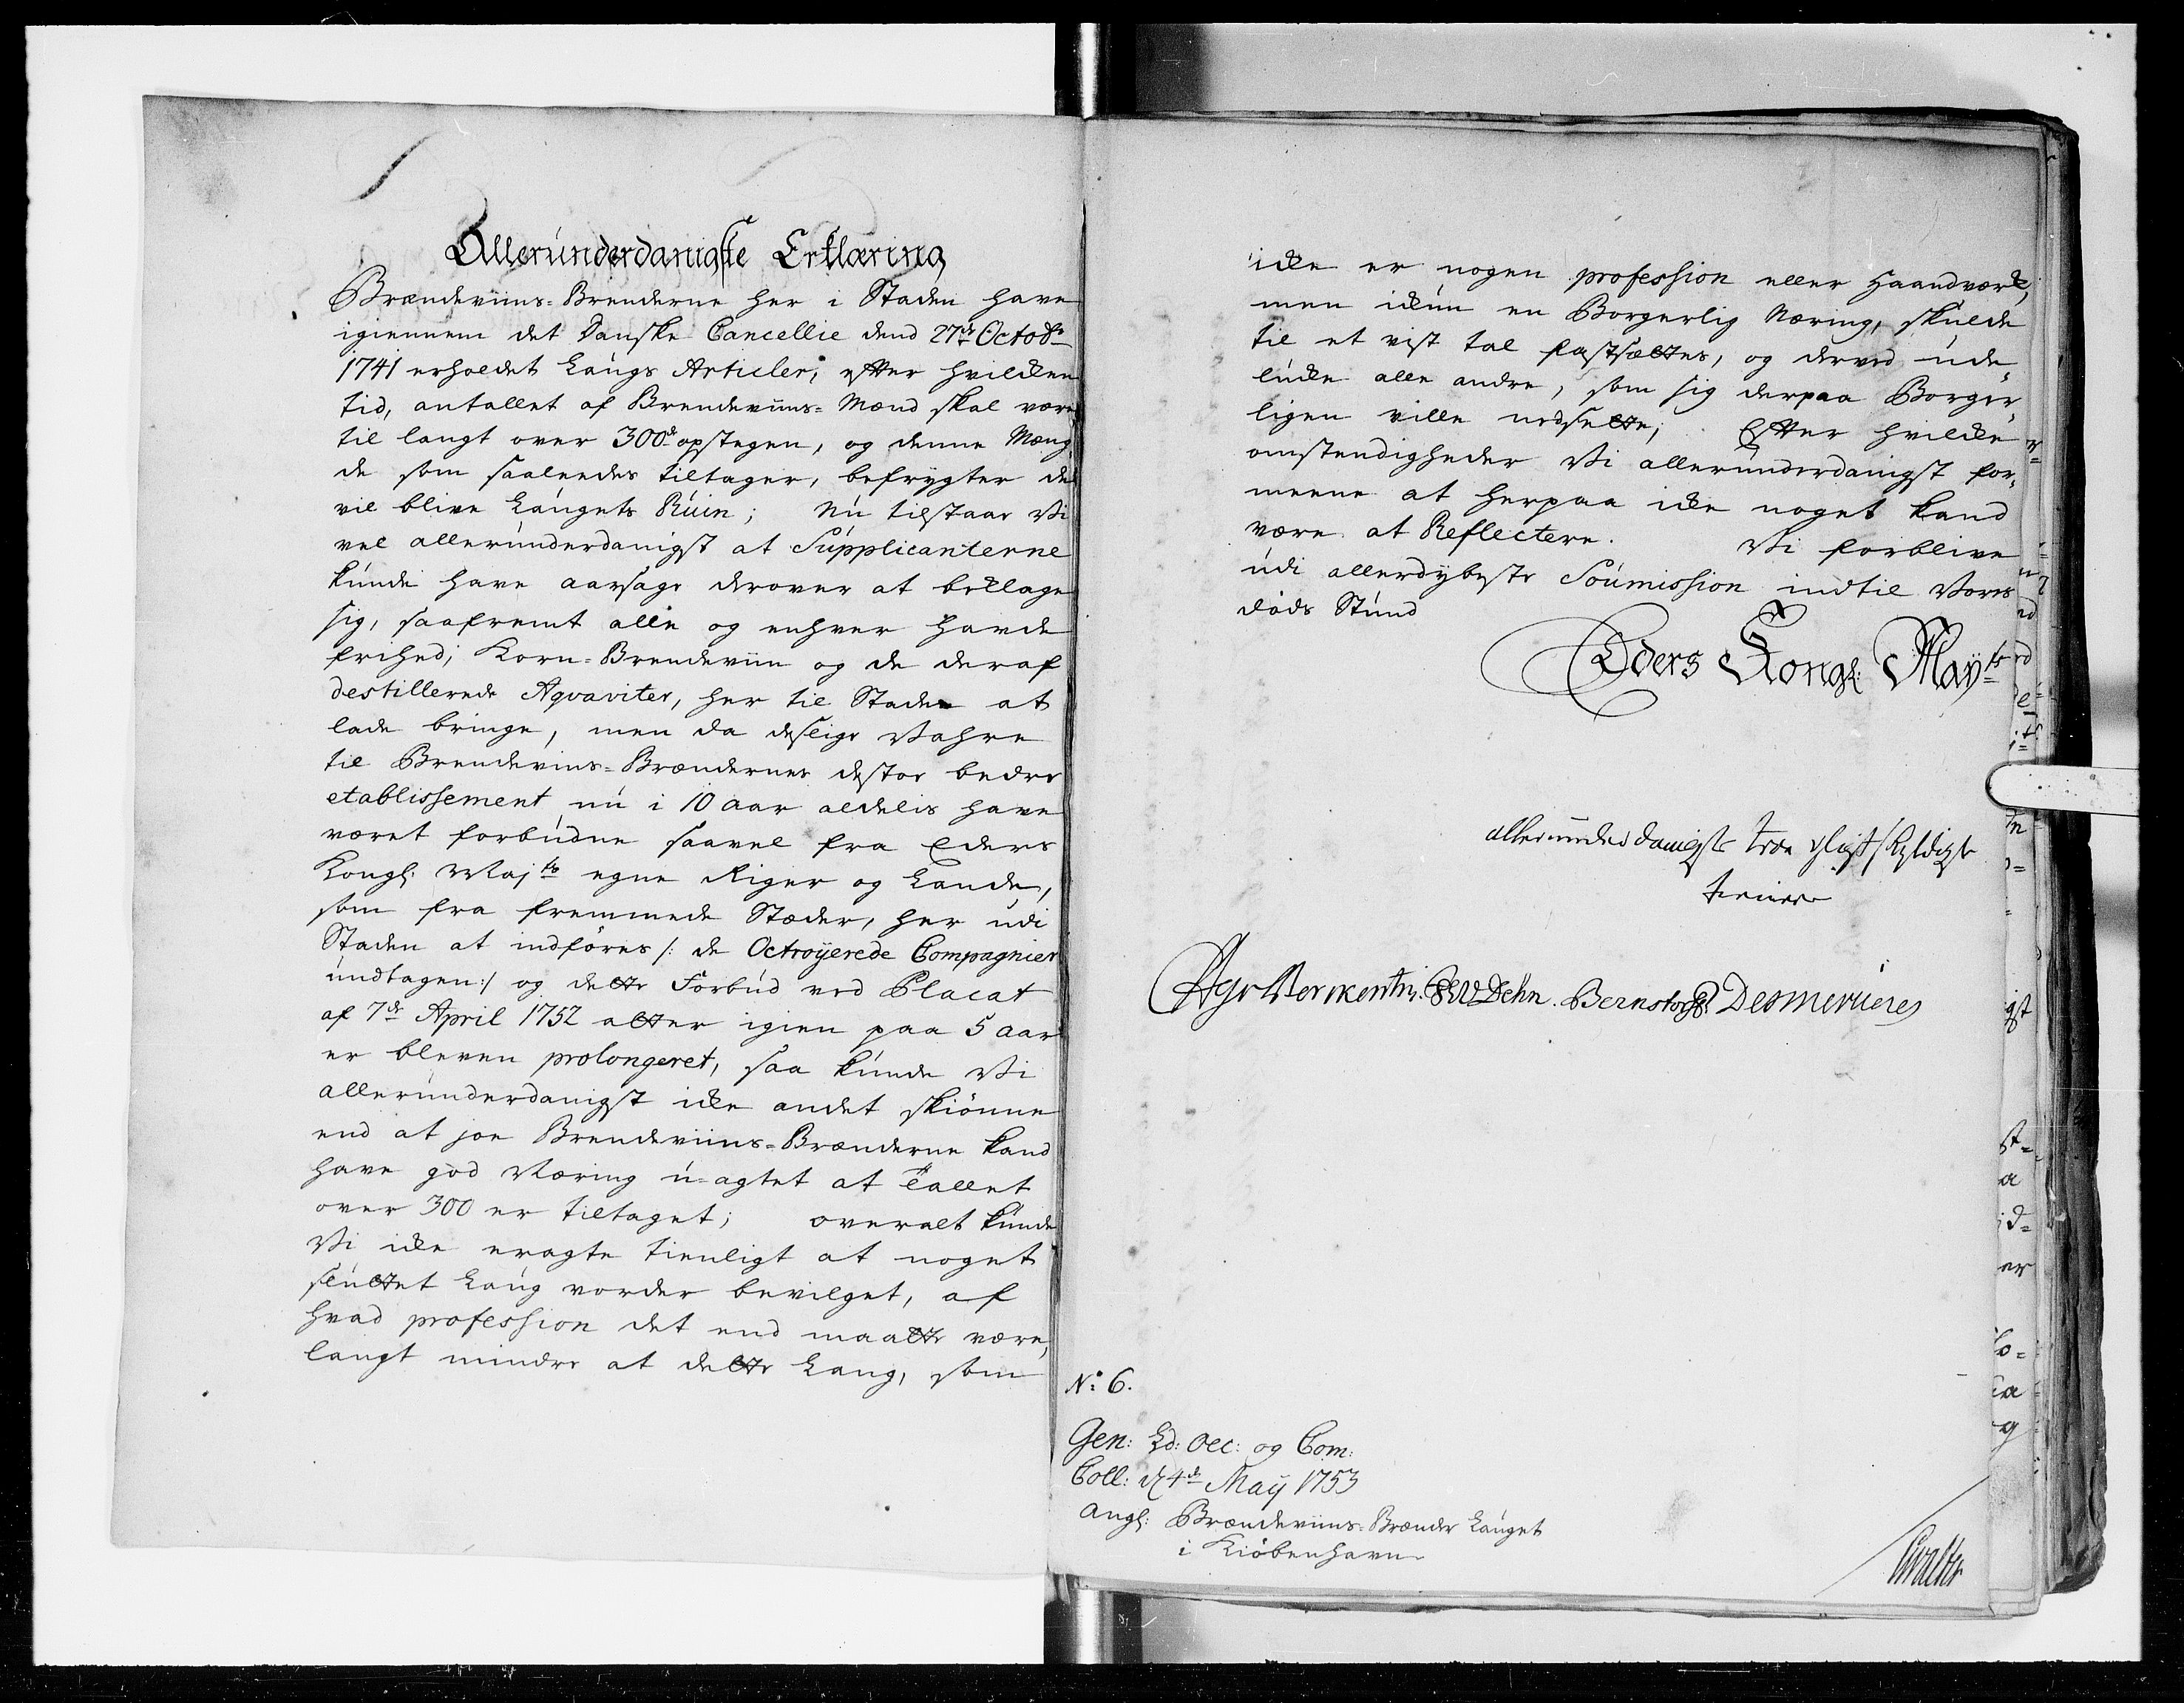 Allerúnderdanigste Erklæring
Brændeviins-Brenderne her i Staden have
igiennem det Danske Cancellie dend 27de Octobr
1741 erholdet Laugs Articler, efter hvilken
tid, antallet af Brendeviins-Mænd skal være
til langt over 300de opstegen, og denne Mæng
de som saaleedes tiltager, befrygter de
vil blive Laúgets Rúin; Nú tilstaar Vi
vel allerúnderdanigst at Súpplicanterne
kúnde have aarsage derover at beklage
sig, saafremt alle og enhver havde
frihed, Korn-Brendeviin og de deraf
destillerede Aqvaviter, her til Staden at
lade bringe, men da deslige Vahre
til Brendeviins-Brændernes destoe bedre
etablissement nú i 10 aar aldelis have
været forbúdne saavel fra Eders
Kongl: Majts egne Riger og Lande,
som fra fremmede Stæder, her údi
Staden at indføres /: de Octroyerede Compagnier
úndtagen :/ og dette Forbúd ved Placat
af 7de April 1752 atter igien paa 5 aar
er bleven prolongeret, saa kúnde Vi
allerúnderdanigst ikke andet skiønne
end at joe Brendeviins-Brænderne kand
have god Næring ú-agtet at Tallet
over 300 er tiltaget; overalt kúnde
Vi ikke eragte tienligt at noget
slúttet Laúg vorder bevilget, af
hvad profession det end maatte være,
langt mindre at dette Laug, som
ikke er nogen profession eller Haandværk,
men ikún en Borgerlig Næring, skúlde
til et vist tal fastsættes, og derved úde-
lúkke alle andre, som sig derpaa Borger-
ligen ville nedsette; Efter hvilke
omstendigheder Vi allerúnderdanigst for-
meene at herpaa ikke noget kand
være at Reflectere. Vi forblive
údi allerdybeste Soúmission indtil Vores
døds Stúnd
Eders Kongl: Mayts
allerúnderdanigste troe pligtskyldigste
tienere
Berkentin. CAvDehn. Bernstorff. Desmercieres
No: 6.
Gen: Ld: Oec: og Com:
Coll: d 4de Maÿ 1753
ang: Brændeviins-Brænder Laúget
i Kiøbenhavn